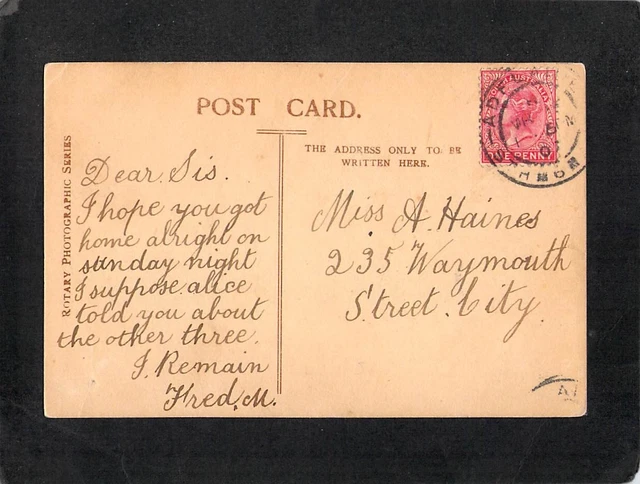 POST CARD.
THE ADDRESS ONLY TO BE
WRITTEN HERE.
ROTARY PHOTOGRAPHIC SERIES
Dear Sis.
I hope you got
home alright on
sunday night
I suppose alice
told you about
the other three.
I. Remain
Fred. M.
Miss A. Haines
235 Waymouth
Street. City.
AUSTRALIA
ONE PENNY